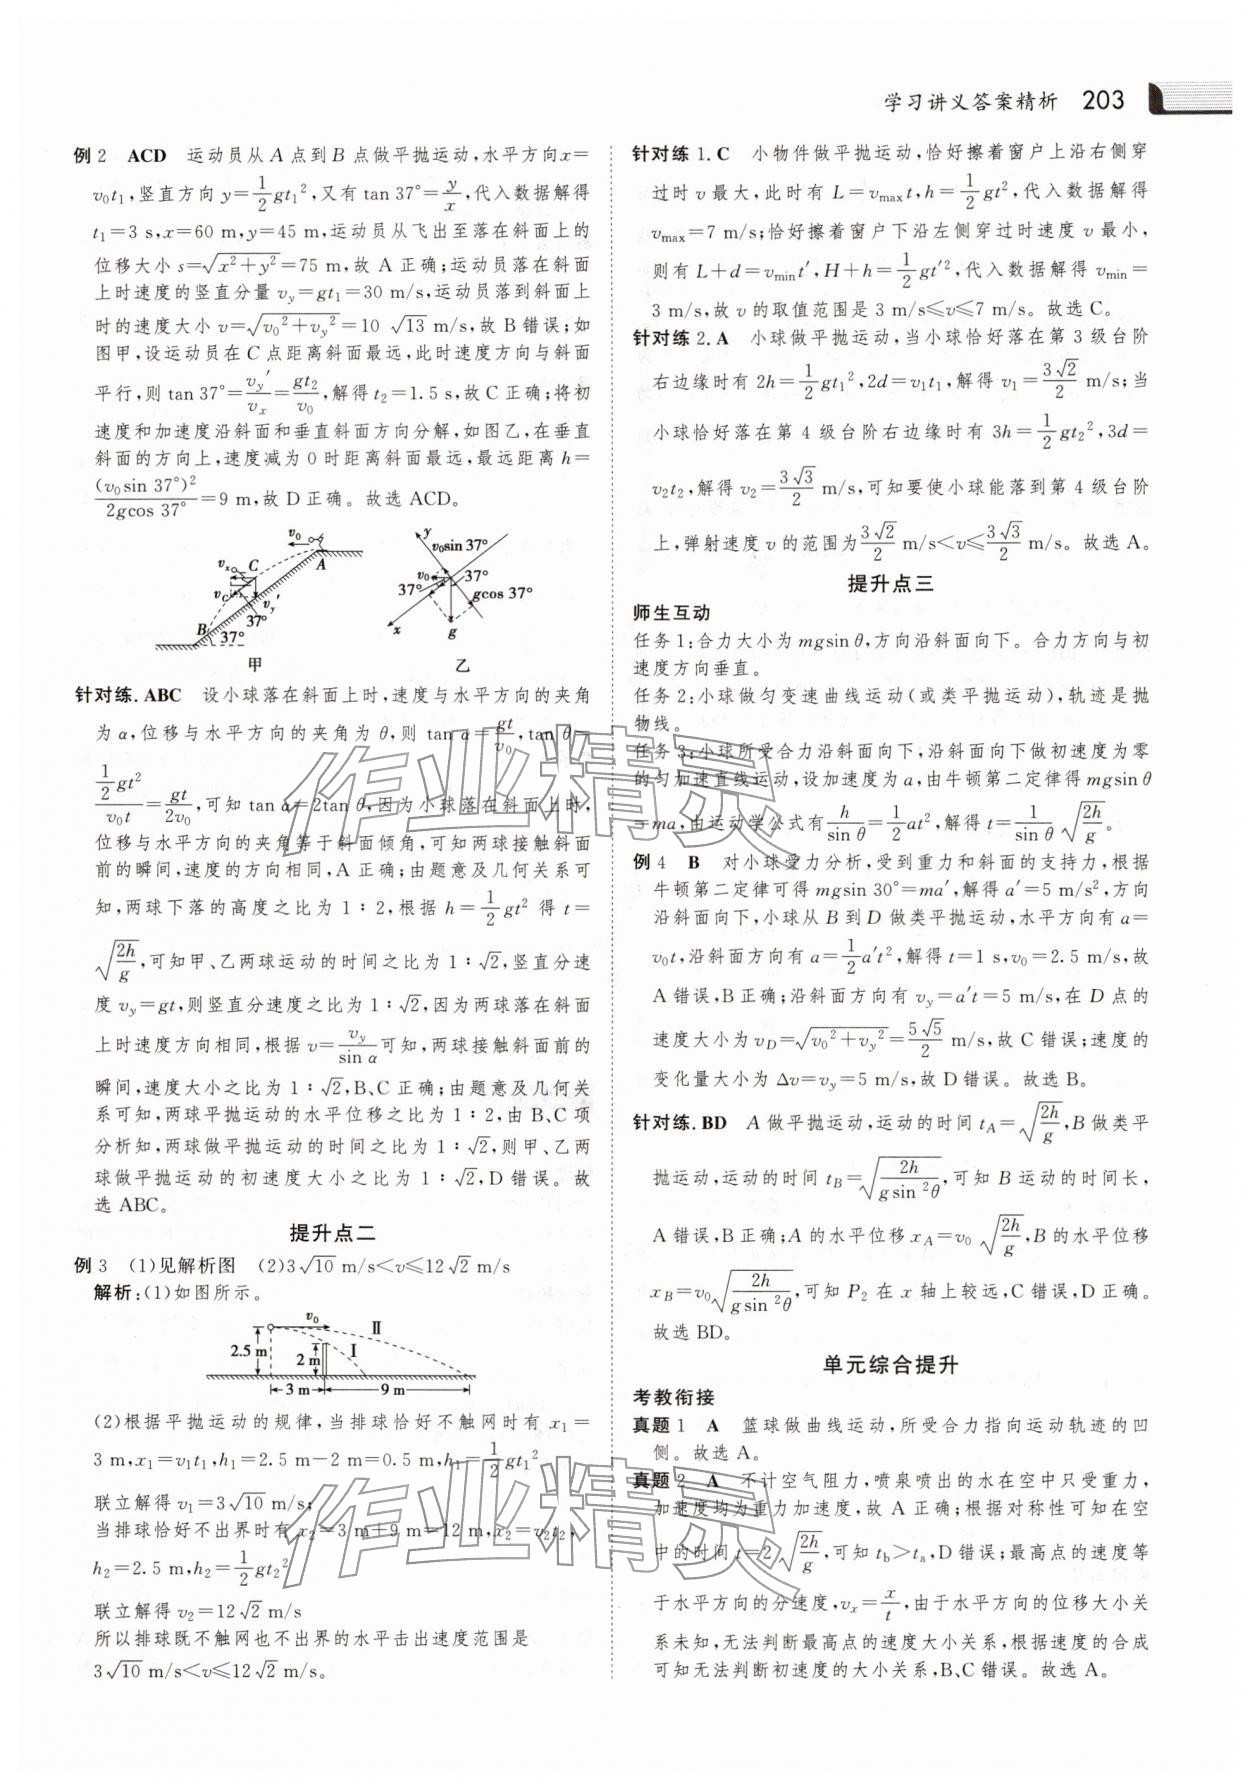 学习讲义答案精析 203
例 2 ACD 运动员从 A 点到 B 点做平抛运动,水平方向 x=
v₀t₁,竖直方向 y=1/2 gt₁²,又有 tan 37°=y/x,代入数据解得
t₁=3 s,x=60 m,y=45 m,运动员从飞出至落在斜面上的
位移大小 s=√(x²+y²)=75 m,故 A 正确;运动员落在斜面
上时速度的竖直分量 v_y=gt₁=30 m/s,运动员落到斜面上
时的速度大小 v=√(v₀²+v_y²)=10 √13 m/s,故 B 错误;如
图甲,设运动员在 C 点距离斜面最远,此时速度方向与斜面
平行,则 tan 37°=v_y′/v_x=gt₂/v₀,解得 t₂=1.5 s,故 C 正确;将初
速度和加速度沿斜面和垂直斜面方向分解,如图乙,在垂直
斜面的方向上,速度减为 0 时距离斜面最远,最远距离 h=
(v₀sin 37°)²/(2gcos 37°)=9 m,故 D 正确。故选 ACD。
v₀ A v_x C v_C v_y′ 37° B 37°
甲
y v₀sin 37° v₀ 37° 37° gcos 37° x g
乙
针对练. ABC 设小球落在斜面上时,速度与水平方向的夹角
为 α,位移与水平方向的夹角为 θ,则 tan α=gt/v₀,tan θ=
(1/2 gt²)/(v₀t)=gt/(2v₀),可知 tan α=2tan θ,因为小球落在斜面上时,
位移与水平方向的夹角等于斜面倾角,可知两球接触斜面
前的瞬间,速度的方向相同,A 正确;由题意及几何关系可
知,两球下落的高度之比为 1∶2,根据 h=1/2 gt² 得 t=
√(2h/g),可知甲、乙两球运动的时间之比为 1∶√2,竖直分速
度 v_y=gt,则竖直分速度之比为 1∶√2,因为两球落在斜面
上时速度方向相同,根据 v=v_y/sin α 可知,两球接触斜面前的
瞬间,速度大小之比为 1∶√2,B、C 正确;由题意及几何关
系可知,两球平抛运动的水平位移之比为 1∶2,由 B、C 项
分析知,两球做平抛运动的时间之比为 1∶√2,则甲、乙两
球做平抛运动的初速度大小之比为 1∶√2,D 错误。故
选 ABC。
提升点二
例 3 (1)见解析图 (2)3√10 m/s<v≤12√2 m/s
解析:(1)如图所示。
v₀ Ⅱ
2.5 m 2 m Ⅰ
3 m 9 m
(2)根据平抛运动的规律,当排球恰好不触网时有 x₁=
3 m,x₁=v₁t₁,h₁=2.5 m−2 m=0.5 m,h₁=1/2 gt₁²
联立解得 v₁=3√10 m/s;
当排球恰好不出界时有 x₂=3 m+9 m=12 m,x₂=v₂t₂,
h₂=2.5 m,h₂=1/2 gt₂²
联立解得 v₂=12√2 m/s
所以排球既不触网也不出界的水平击出速度范围是
3√10 m/s<v≤12√2 m/s。
针对练 1. C 小物件做平抛运动,恰好擦着窗户上沿右侧穿
过时 v 最大,此时有 L=v_max t,h=1/2 gt²,代入数据解得
v_max=7 m/s;恰好擦着窗户下沿左侧穿过时速度 v 最小,
则有 L+d=v_min t′,H+h=1/2 gt′²,代入数据解得 v_min=
3 m/s,故 v 的取值范围是 3 m/s≤v≤7 m/s。故选 C。
针对练 2. A 小球做平抛运动,当小球恰好落在第 3 级台阶
右边缘时有 2h=1/2 gt₁²,2d=v₁t₁,解得 v₁=3√2/2 m/s;当
小球恰好落在第 4 级台阶右边缘时有 3h=1/2 gt₂²,3d=
v₂t₂,解得 v₂=3√3/2 m/s,可知要使小球能落到第 4 级台阶
上,弹射速度 v 的范围为 3√2/2 m/s<v≤3√3/2 m/s。故选 A。
提升点三
师生互动
任务 1:合力大小为 mgsin θ,方向沿斜面向下。合力方向与初
速度方向垂直。
任务 2:小球做匀变速曲线运动(或类平抛运动),轨迹是抛
物线。
任务 3:小球所受合力沿斜面向下,沿斜面向下做初速度为零
的匀加速直线运动,设加速度为 a,由牛顿第二定律得 mgsin θ
=ma,由运动学公式有 h/sin θ=1/2 at²,解得 t=1/sin θ √(2h/g)。
例 4 B 对小球受力分析,受到重力和斜面的支持力,根据
牛顿第二定律可得 mgsin 30°=ma′,解得 a′=5 m/s²,方向
沿斜面向下,小球从 B 到 D 做类平抛运动,水平方向有 a=
v₀t,沿斜面方向有 a=1/2 a′t²,解得 t=1 s,v₀=2.5 m/s,故
A 错误,B 正确;沿斜面方向有 v_y=a′t=5 m/s,在 D 点的
速度大小为 v_D=√(v₀²+v_y²)=5√5/2 m/s,故 C 错误;速度的
变化量大小为 Δv=v_y=5 m/s,故 D 错误。故选 B。
针对练. BD A 做平抛运动,运动的时间 t_A=√(2h/g),B 做类平
抛运动,运动的时间 t_B=√(2h/(gsin²θ)),可知 B 运动的时间长,
A 错误,B 正确;A 的水平位移 x_A=v₀√(2h/g),B 的水平位移
x_B=v₀√(2h/(gsin²θ)),可知 P₂ 在 x 轴上较远,C 错误,D 正确。
故选 BD。
单元综合提升
考教衔接
真题 1 A 篮球做曲线运动,所受合力指向运动轨迹的凹
侧。故选 A。
真题 2 A 不计空气阻力,喷泉喷出的水在空中只受重力,
加速度均为重力加速度,故 A 正确;根据对称性可知在空
中的时间 t=2√(2h/g),可知 t_b>t_a,D 错误;最高点的速度等
于水平方向的分速度,v_x=x/t,由于水平方向的位移大小关
系未知,无法判断最高点的速度大小关系,根据速度的合成
可知无法判断初速度的大小关系,B、C 错误。故选 A。
作业精灵
作业精灵